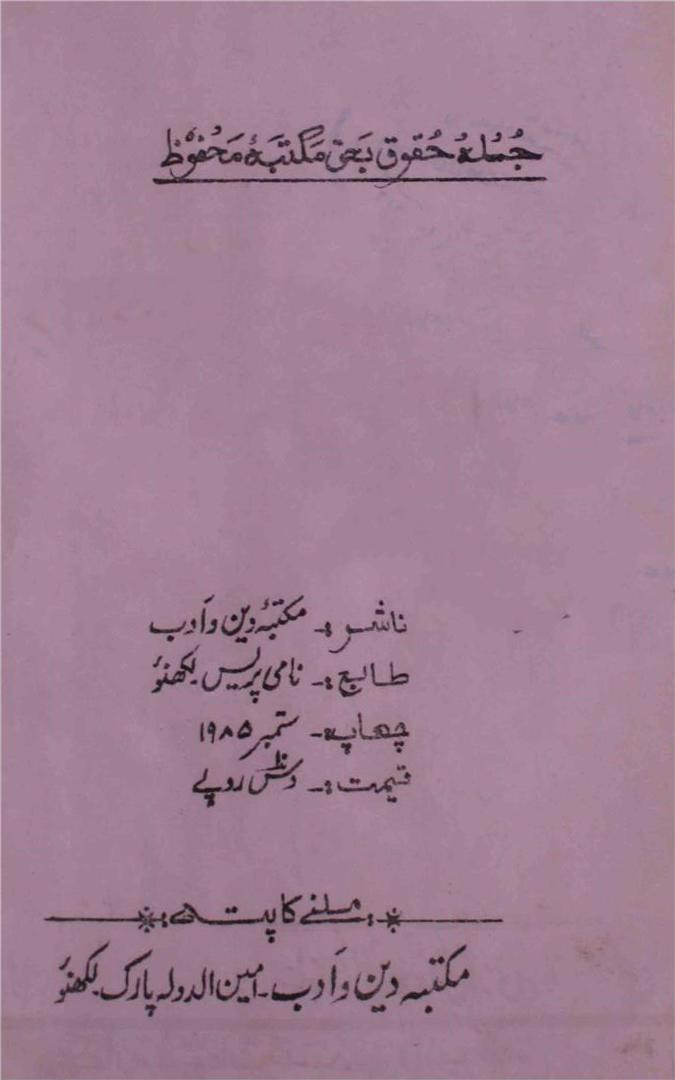 جُملہ حُقوق بَحق مَکتَبَۂ مَحفُوظ
ناشر :۔ مکتبۂ دین و اَدب
طابع :۔ نامی پریس لکھنؤ
چھاپہ :۔ ستمبر ۱۹۸۵
قیمت :۔ دسؔ روپے
ملنے کا پتہ :
مکتبہ دین و اَدب ۔ امین الدولہ پارک ۔ لکھنؤ